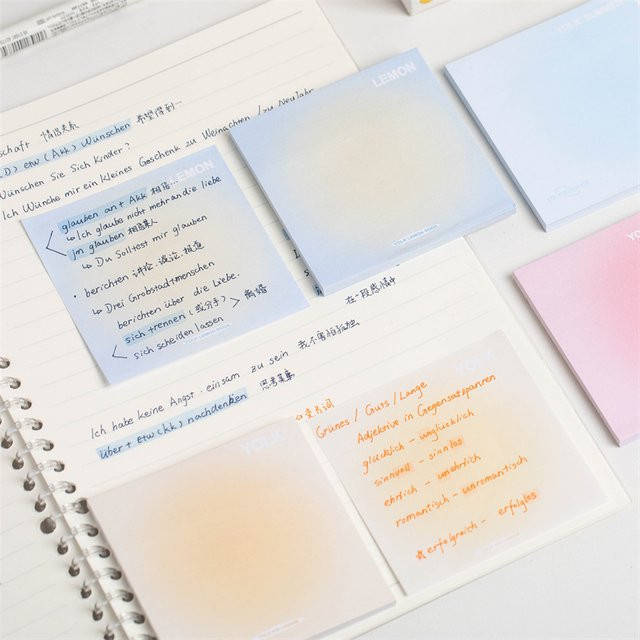 schaft
etw (Akk) wünschen 希望得到一
Wünschen Sie Sich Kinder?
Ich Wünche mir ein kleines Geschenk zu Wünschen / zu Neujahr
LEMON
glauben an + Akk 相信...
↳ Ich glaube nicht mehr an die liebe
jm glauben 相信某人
↳ Du Solltest mir glauben
· berichten 讨论,谈论,报道
↳ Drei Grobstadtmenschen
berichten über die Liebe.
sich trennen (或分手) > 离婚
sich scheiden lassen
LEMON
在一段感情中
Ich habe keine Angst, einsam zu sein 我不害怕孤独
über + etw (Akk) nachdenken 思考某事
YOLK
Grünes / Gurs / Lange
Adjektive in Gegensatzpannen
glücklich - unglücklich
sinnvoll - sinnlos
ehrlich - unehrlich
romantisch - unromantisch
erfolgreich - erfolglos
YOLK